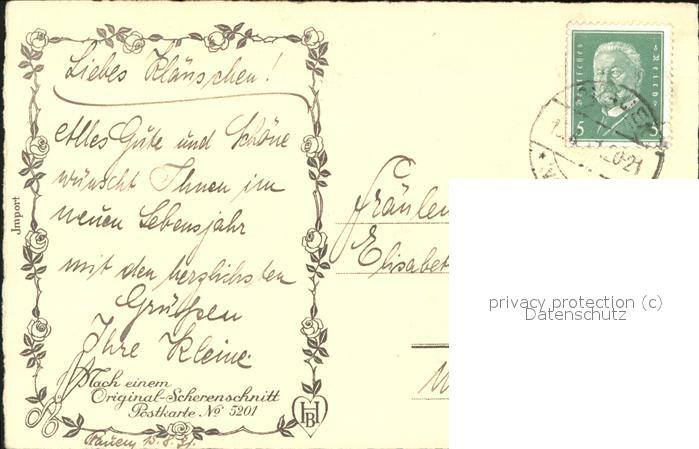 Liebes Kläuschen!
Alles Gute und Schöne
wünscht Ihnen im
neuen Lebensjahr
mit den herzlichsten
Grüßen
Ihre Kleine
Nach einem
Original-Scherenschnitt
Postkarte No 5201
HB
Jmport
Deutsches Reich
5 5
20-21
Fräulein
Elisabet
privacy protection (c)
Datenschutz